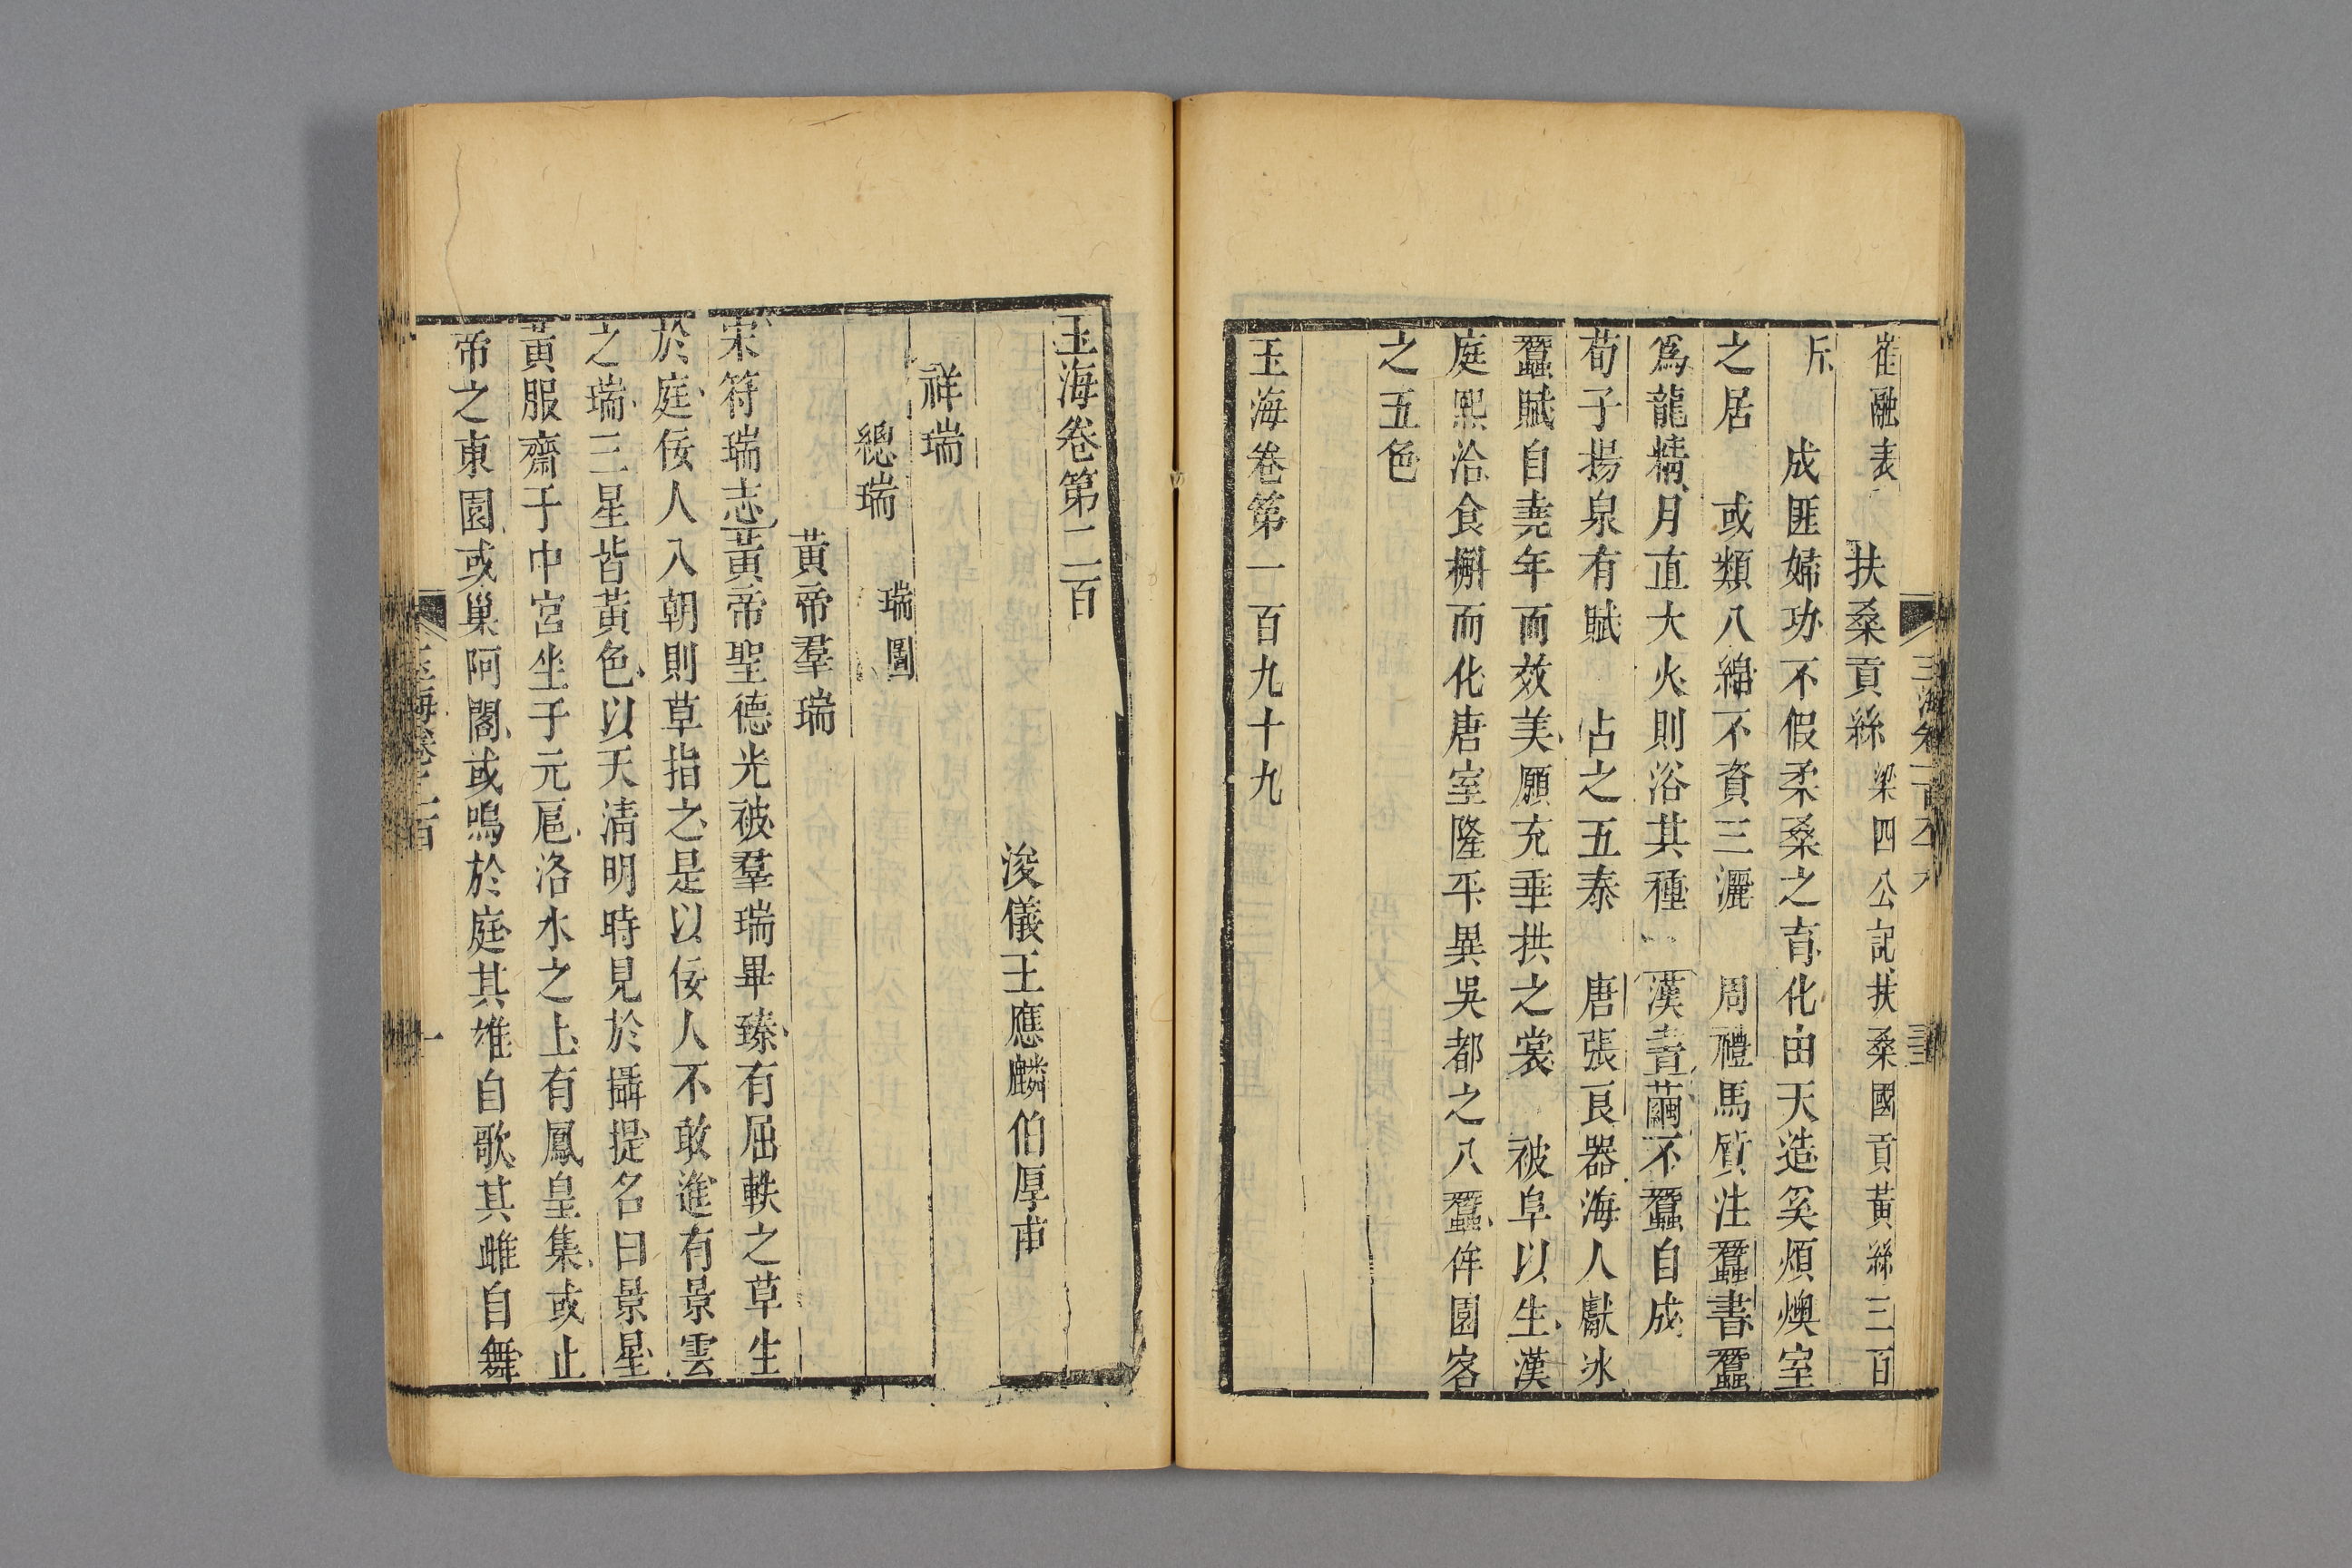 崔融表　扶桑貢絲　梁四公記扶桑國貢黃絲三百
斤　成匪婦功不假柔桑之育化由天造奚煩燠室
之居　或類八緜不資三灑　周禮馬質注蠶書蠶
爲龍精月直大火則浴其種　漢書繭不蠶自成
荀子揚泉有賦　占之五泰　唐張良器海人獻冰
蠶賦自堯年而效美願充垂拱之裳　被阜以生漢
庭熙洽食槲而化唐室隆平異吳都之八蠶侔園客
之五色
玉海卷第一百九十九
玉海卷第二百
浚儀王應麟伯厚甫
祥瑞
總瑞　瑞圖
黃帝羣瑞
宋符瑞志黃帝聖德光被羣瑞畢臻有屈軼之草生
於庭佞人入朝則草指之是以佞人不敢進有景雲
之瑞三星皆黃色以天清明時見於攝提名曰景星
黃服齋于中宮坐于元扈洛水之上有鳳皇集或止
帝之東園或巢阿閣或鳴於庭其雄自歌其雌自舞
玉海卷之二百
一